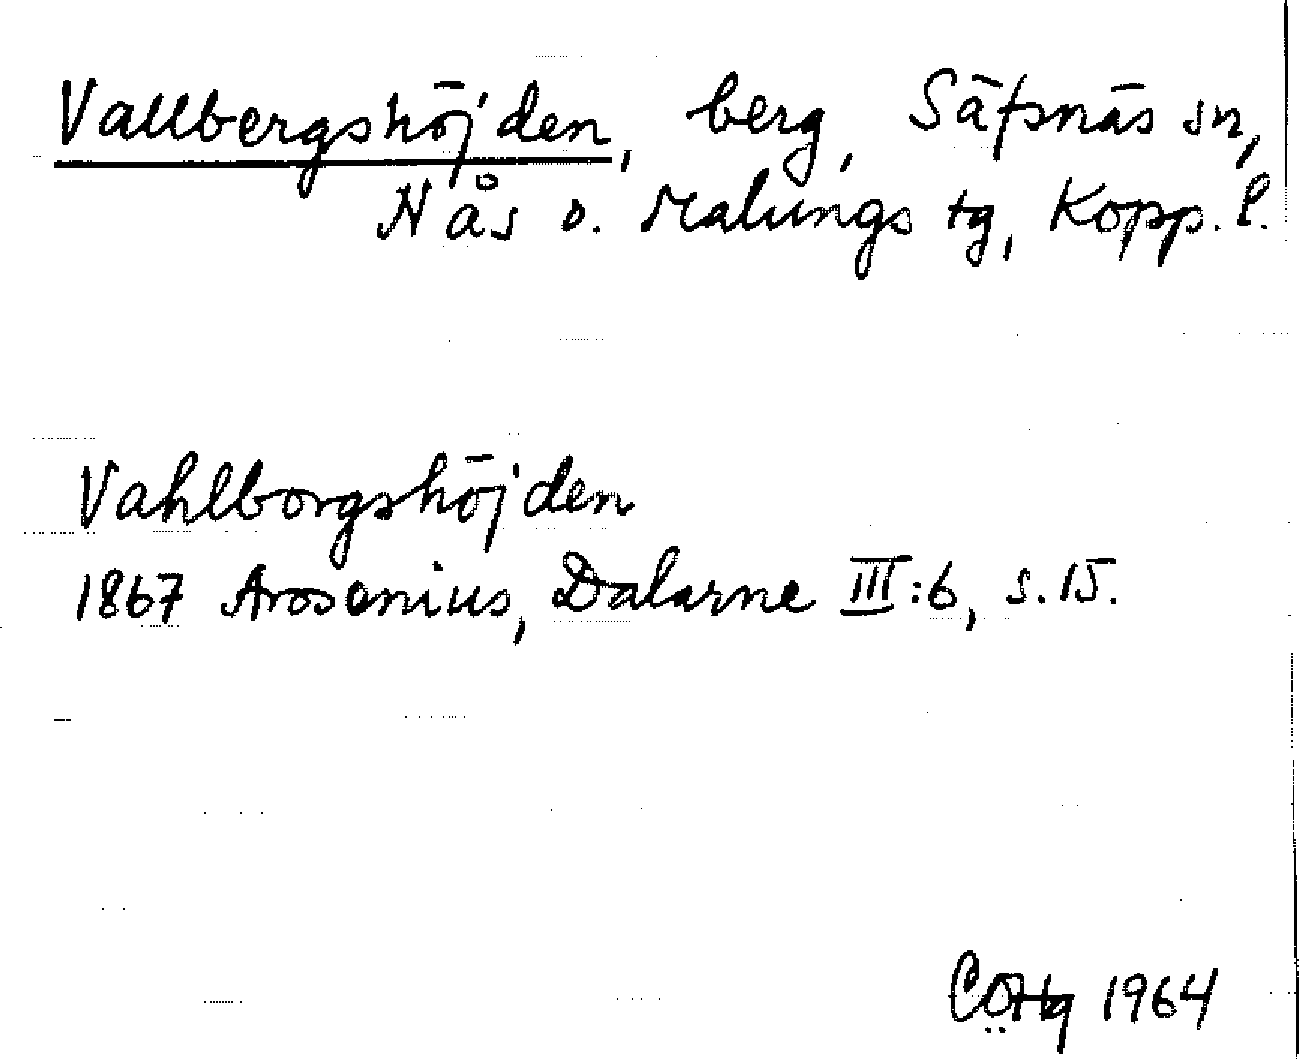 Vallbergshöjden, berg, Säfsnäs sn,
Nås o. Malungs tg, Kopp. l.
Vahlborgshöjden
1867 Arosenius, Dalarne III:6, s. 15.
CÖHg 1964